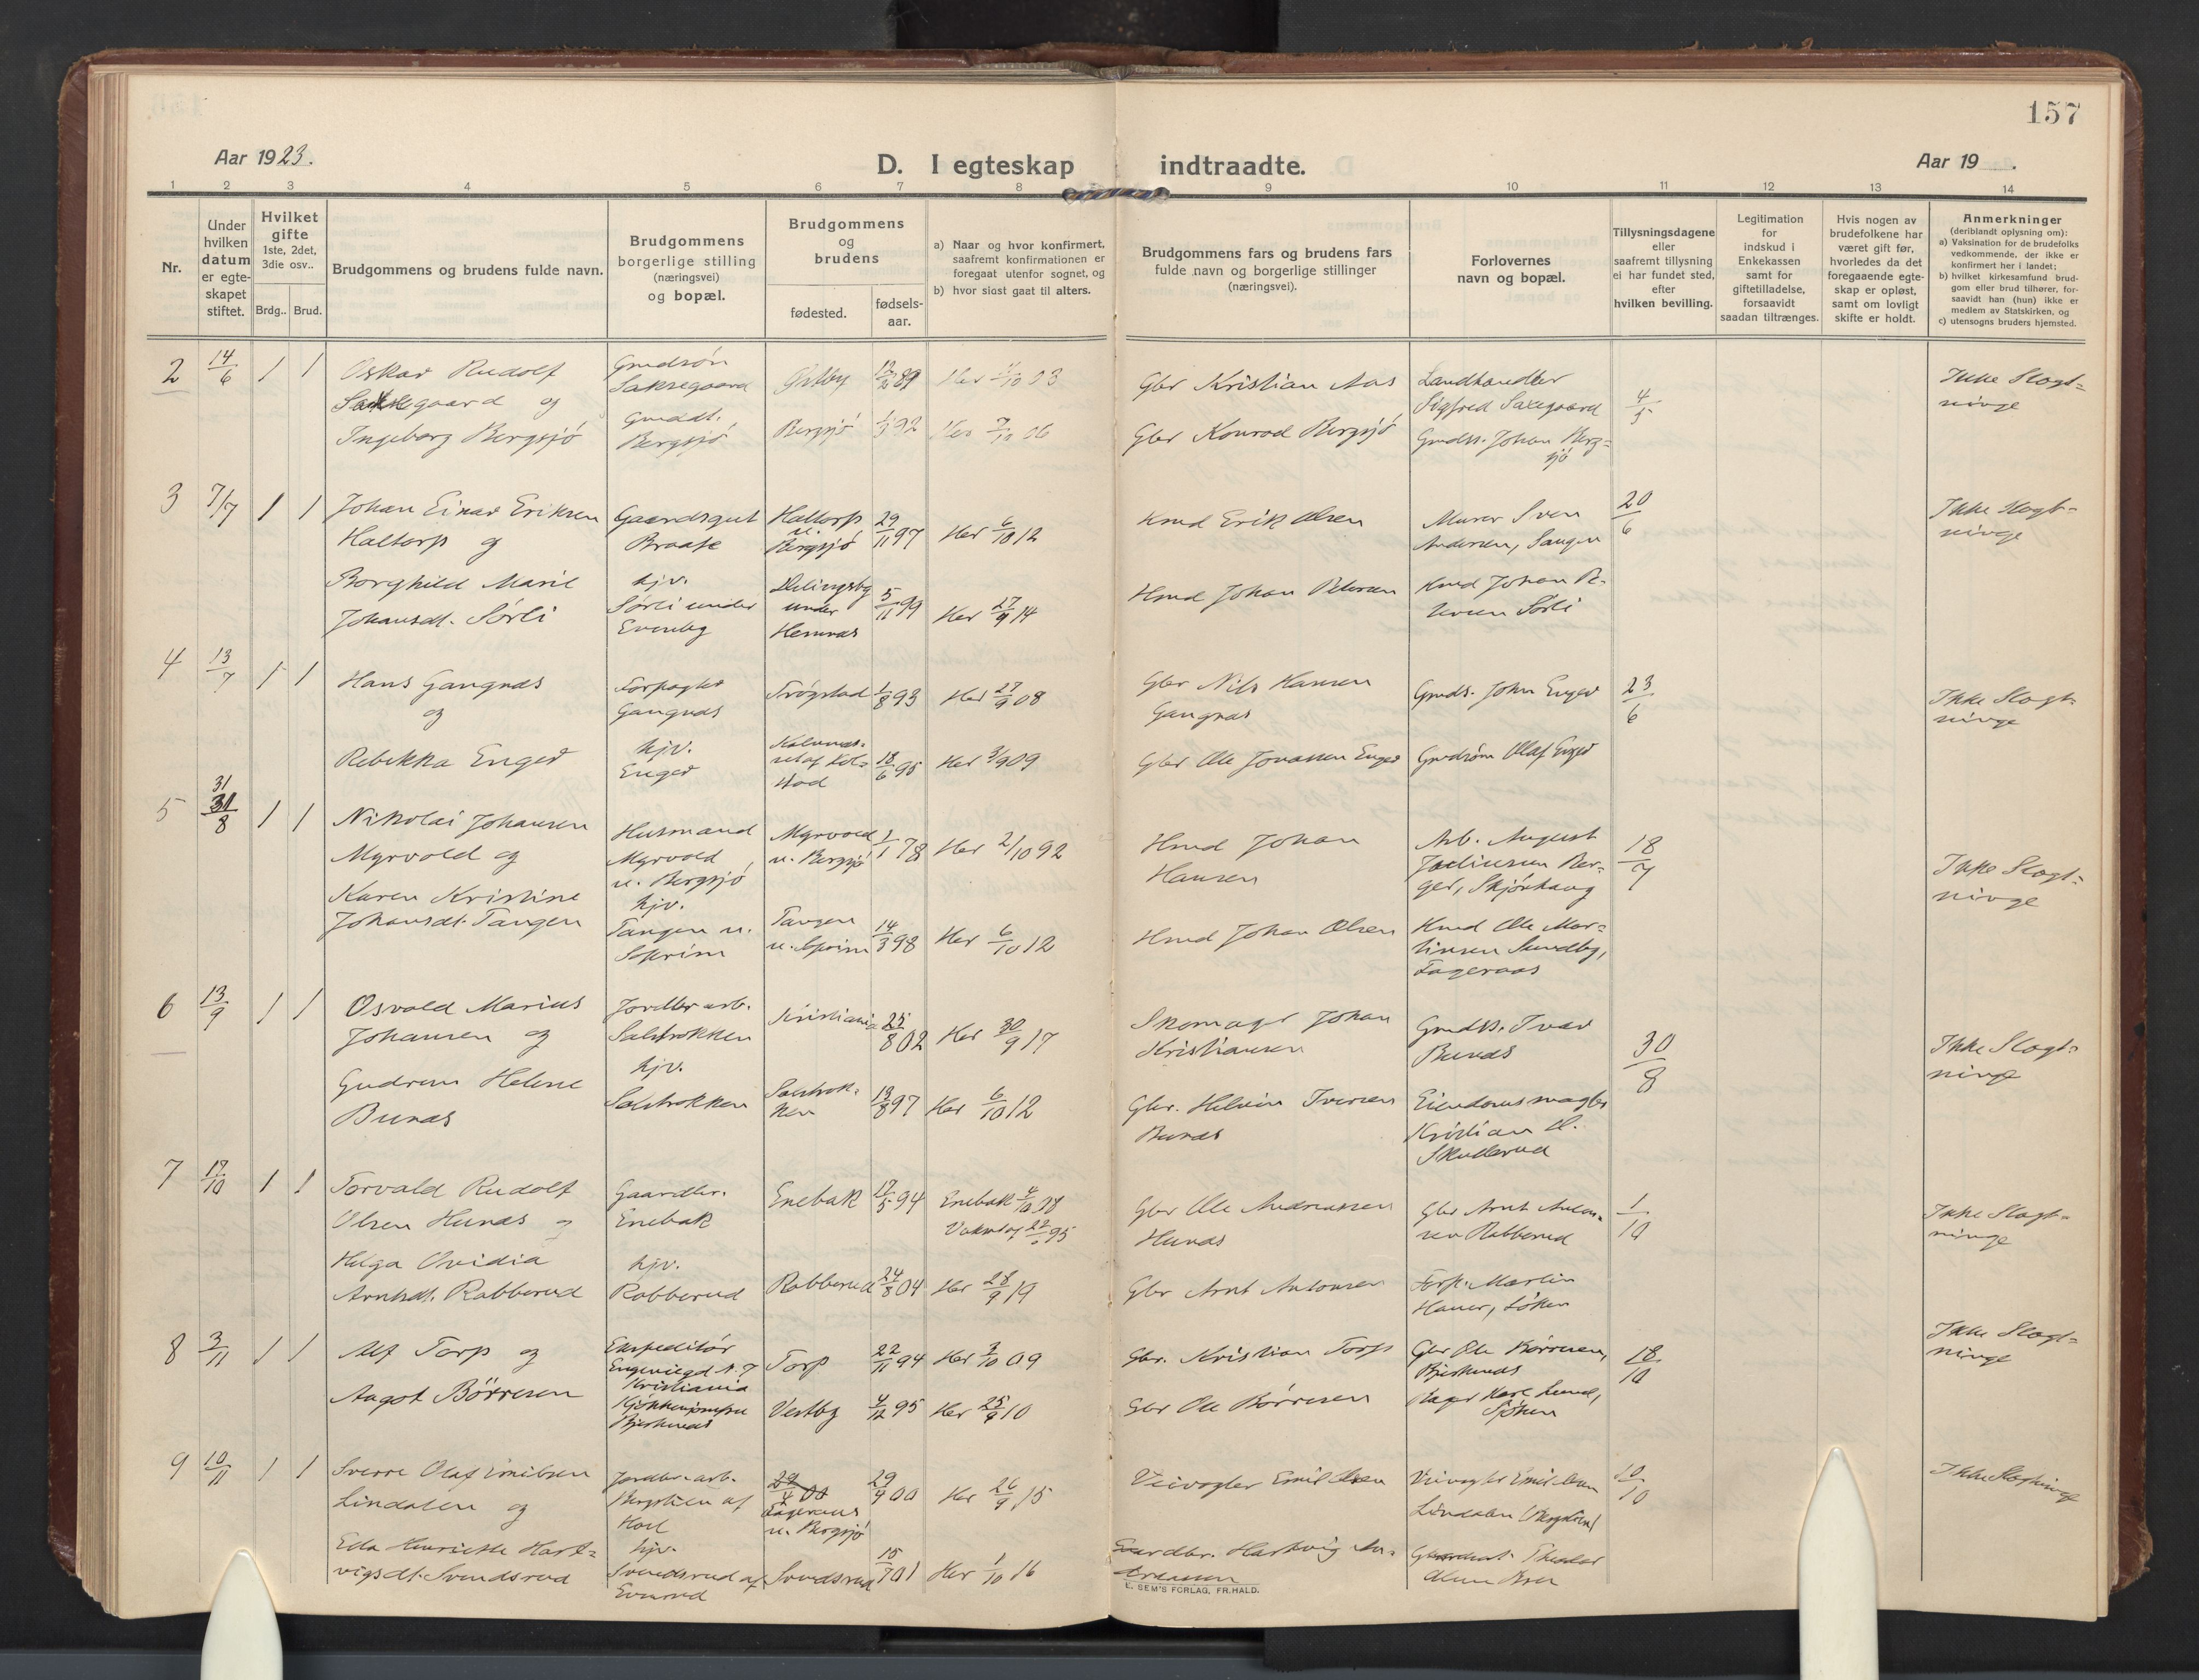 157
Aar 1923.
D. I egteskap indtraadte.
Aar 19
1 2 3 4 5 6 7 8 9 10 11 12 13 14
Nr.
Under
hvilken
datum
er egte-
skapet
stiftet.
Hvilket
gifte
1ste, 2det,
3die osv..
Brdg.. Brud.
Brudgommens og brudens fulde navn.
Brudgommens
borgerlige stilling
(næringsvei)
og bopæl.
Brudgommens
og
brudens
fødested.
fødsels-
aar.
a) Naar og hvor konfirmert,
saafremt konfirmationen er
foregaat utenfor sognet, og
b) hvor sidst gaat til alters.
Brudgommens fars og brudens fars
fulde navn og borgerlige stillinger
(næringsvei).
Forlovernes
navn og bopæl.
Tillysningsdagene
eller
saafremt tillysning
ei har fundet sted,
efter
hvilken bevilling.
Legitimation
for
indskud i
Enkekassen
samt for
giftetilladelse,
forsaavidt
saadan tiltrænges.
Hvis nogen av
brudefolkene har
været gift før,
hvorledes da det
foregaaende egte-
skap er opløst,
samt om lovligt
skifte er holdt.
Anmerkninger
(deriblandt oplysning om):
a) Vaksination for de brudefolks
vedkommende, der ikke er
konfirmert her i landet;
b) hvilket kirkesamfund brud-
gom eller brud tilhører, for-
saavidt han (hun) ikke er
medlem av Statskirken, og
c) utensogns bruders hjemsted.
2 14/6 1 1
Oskar Rudolf
Saksegaard og
Ingeborg Bergsjö
Grudsøn
Saksegaard
Gruddt.
Bergsjö
Østby 89
Bergsjö 92
Her 03
Her 7/10 06
Gbr Kristian Aas
Gbr Konrad Bergsjö
Landhandler
Sigfred Saxegaard
Grudss. Johan Berg=
sjö
4/5
Ikke Slægt=
ninge
3 7/7 1 1
Johan Einar Eriksen
Haltorp og
Borghild Marie
Johansdt. Sörli
Gaardsgut
Braate
hjv.
Sørli under
Evenby
Haltorp
u.
Bergsjö
29/11 97
Her 6/10 12
under
Hemnes
5/11 99
Her 27/9 14
Hmd Erik Olsen
Hmd Johan Petersen
Murer Sven
Andersen, Saugen
Hmd Johan Pe-
tersen Sørli
20/6
Ikke Slægt=
ninge
4 13/7 1 1
Hans Gangnæs
og
Rebekka Enger
Forpagter
Gangnæs
hjv.
Enger
Trøgstad 1/8 93
Her 27/9 08
18/6 95
Her 3/9 09
Gbr Nils Hansen
Gangnæs
Gbr Ole Jonassen Enger
Gruds. John Enger
Grudsøn Olaf Enger
23/6
Ikke Slægt=
ninge
31
5 31/8 1 1
Nikolai Johansen
Myrvold og
Karen Kristine
Johansdt. Tangen
Husmand
Myrvold
u. Bergsjö
hjv.
Tangen u.
Myrvold
u. Bergsjö
1/1 78
Her 2/10 92
Tangen
14/3 98
Her 6/10 12
Hmd Johan
Hansen
Hmd Johan Olsen
Arb. August
Juliussen Ber-
ger, Skjønhaug
Hmd Ole Mar=
tinsen Sundby,
Fageraas
18/7
Ikke Slægt=
ninge
6 13/9 1 1
Osvald Marius
Johansen og
Gudrun Helene
Bunæs
Jordbr arb.
Salsrokken
hjv.
Salsrokken
Kristiania 25/8 02
Her 30/9 17
13/8 97
Her 6/10 12
Skomager Johan
Kristiansen
Gbr. Helvin Iversen
Bunæs
Grudss. Ivar
Bunæs
Eiendomsmægler
Kristian H.
Skullerud
30/8
Ikke Slægt=
ninge
7 17/10 1 1
Torvald Rudolf
Olsen Hunæs og
Helga Ovidia
Arntsdt. Rabberud
Gaardbr.
Enebak
hjv.
Rabberud
Enebak 17/5 94
Enebak 4/10 08
Rabberud 24/8 04
Her 28/9 19
Gbr Ole Andreassen
Hunæs
Gbr Arnt Antonsen
Gbr Arnt Anton-
sen Rabberud
Forp. Martin
Hauer, Löken
1/10
Ikke Slægt=
ninge
8 3/11 1 1
Alf Torp og
Aagot Börresen
Ekspeditör
Kristiania
Kjøkkenjomfru
Bjerknæs
Torp 22/11 94 Her 3/10 09
Vestby 4/12 95 Her 25/9 10
Gbr. Kristian Torp
Gbr Ole Börresen
Gbr Ole Börresen,
Bjerknæs
Karl Lund,
18/10
Ikke Slægt=
ninge
9 10/11 1 1
Sverre Olaf Emilsen
Lindalen og
Eda Henriette Hart=
vigsdt. Svendsrud
Jordbr.-arb.
Bergslien af
hjv.
Svendsrud af
29/4 00
Fageraas
u. Bergsjö
29/4 00
Her 26/9 15
Svendsrud 15/7 01
Her 1/10 16
Veivogter Emil Olsen
Gaardbr. Hartvig An-
dreassen
Veivogter Emil Olsen
Lindalen (Bergslien)
10/10
Ikke Slægtninge
E. SEM'S FORLAG, FR.HALD.